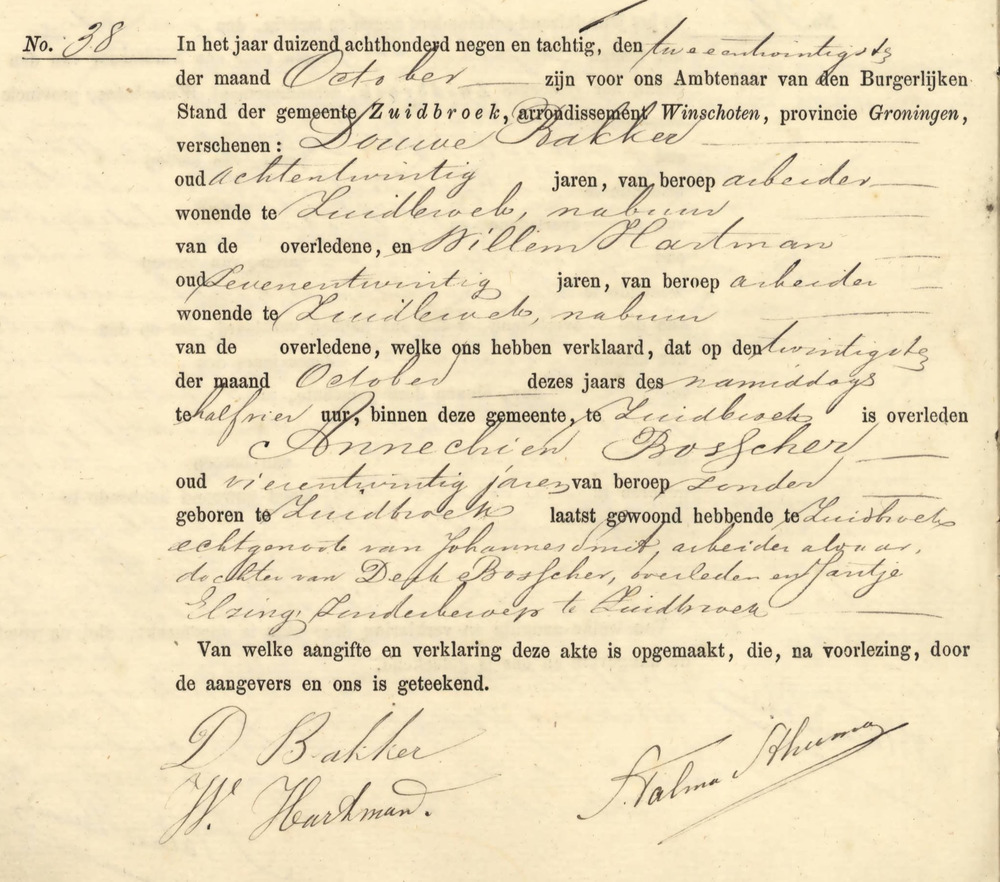 No. 38
In het jaar duizend achthonderd negen en tachtig, den tweeentwintigste
der maand October zijn voor ons Ambtenaar van den Burgerlijken
Stand der gemeente Zuidbroek, arrondissement Winschoten, provincie Groningen,
verschenen: Douwe Bakker
oud achtentwintig jaren, van beroep arbeider
wonende te Zuidbroek, nabuur
van de overledene, en Willem Hartman
oud zevenentwintig jaren, van beroep arbeider
wonende te Zuidbroek, nabuur
van de overledene, welke ons hebben verklaard, dat op den twintigste
der maand October dezes jaars des namiddags
te halfvier uur, binnen deze gemeente, te Zuidbroek is overleden
Annechien Bosscher
oud vierentwintig jaren van beroep zonder
geboren te Zuidbroek laatst gewoond hebbende te Zuidbroek
echtgenoote van Johannes Smit, arbeider aldaar,
dochter van Derk Bosscher, overleden en Jantje
Elzing, zonder beroep te Zuidbroek
Van welke aangifte en verklaring deze akte is opgemaakt, die, na voorlezing, door
de aangevers en ons is geteekend.
D Bakker
W. Hartman.
Talma Sthuma